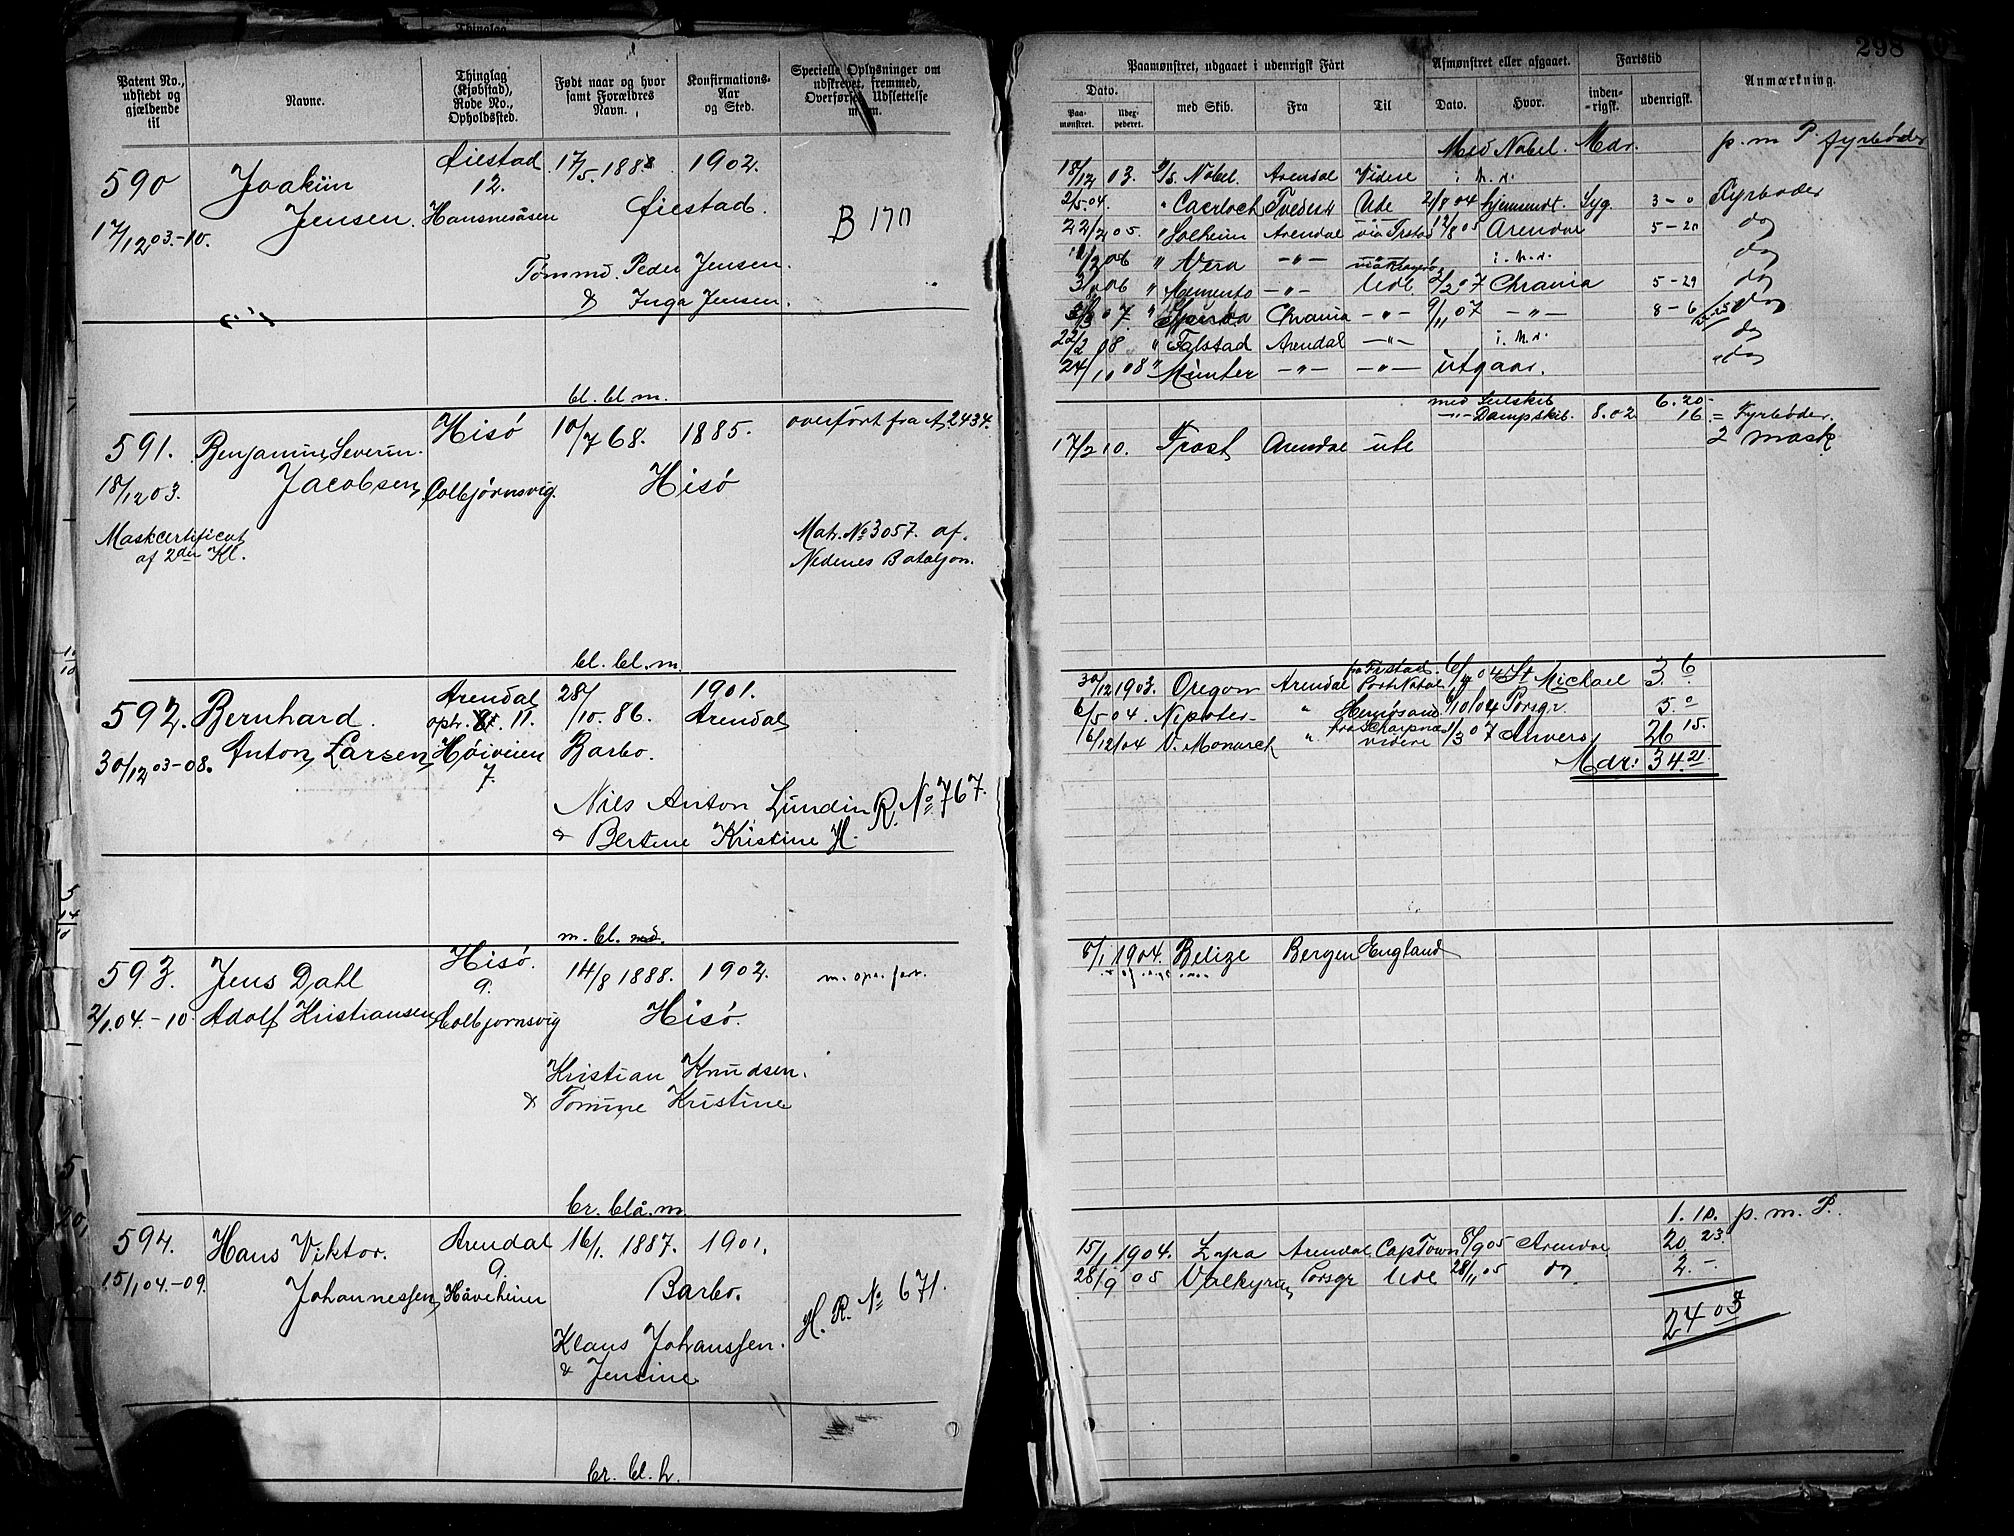 298
Patent No., udstedt og gjældende til
Navne.
Thinglag (Kjøbstad), Rode No., Opholdssted.
Født naar og hvor samt Forældres Navn.
Konfirmations-Aar og Sted.
Specielle Oplysninger om udskrevet, fremmed, Overførsel, Udslettelse m. m.
Paamønstret, udgaaet i udenrigsk Fart
Afmønstret eller afgaaet.
Fartstid
Anmærkning.
Dato.
Paa-mønstret.
Udex-pederet.
med Skib.
Fra
Til
Dato.
Hvor.
inden-rigsk.
udenrigsk.
590 Joakim Øiestad 17/5 1888 1902.
12.
Jensen Hansnesåsen Øiestad. B 170
17/12 03.-10.
Tømmd. Peder Jensen.
& Inga Jensen.
bl. bl. m.
Med Nobel. Mdr. p. m P. fyrbøder
18/12 03. D/S. Nobel. Arendal Videre i. h. d.
2/5 04. " Caerloch Tvedest Ude 2/8 04 hjemsendt. Syg. 3 - 0 Fyrbøder
22/2 05. " Solheim Arendal via Frstad 12/8 05 Arendal 5 - 20 do
/2 06 " Vera -"- i. h. d. do
3/8 06 " Memento -"- Ude 2/2 07 Chrania 5 - 29 do
3/3 07. " Chrania -"- 9/11 07 -"- 8 - 6 do
22/2 08 " Falstad Arendal -"- i. h. d. do
24/10 08 " Munter -"- -"- utgaar. do
591. Benjamin Severin Hisø 10/7 68. 1885. overført fra A 2434.
18/12 03. Jacobsen Colbjørnsvig. Hisø
Maskcertificat
af 2den Kl.
Matr. No 3057. af.
Nedenes Bataljon.
bl. bl. m.
med Seilskib 6. 20.
-"- Dampskib. 8.02 16. = Fyrbøder.
17/2 10. Frost Arendal ute 2 mask
592. Bernhard. Arendal 28/10. 86. 1901.
opr. 11. Arendal
30/12 03-08. Anton Larsen Høiveien Barbo.
7.
Nils Anton Lundin R. No 767.
& Bertine Kristine H.
m. bl.
30/12 1903. Oregon Arendal fra Frstad Port Natal 6/9 04 St Michael 3. 6
6/5 04. Nipoter " Hernøsand 6/10 04 Porsgr. 5. 0
6/12 04 V. Monarck " videre 1/3 07 Anvers 26 15.
Mdr: 34. 21.
593. Jens Dahl Hisø. 14/8 1888. 1902. m. opr. fart.
9.
2/1 04.-10. Adolf Kristiansen Kolbjornsvig Hisø.
Kristian Knudsen.
& Tomine Kristine
br. blå. m.
8/1 1904. Belize Bergen England
594. Hans Viktor. Arendal 16/1. 1887. 1901.
9.
15/1 04.-09. Johannessen Håveheien Barbo. H. R. No 671.
Klaus Johanssen.
& Jensine
br. bl. h.
1. 10. p. m. P.
15/1 1904. Zyra Arendal CapTown 8/9 05 Arendal 20 23.
28/9 05 Valkyrien Porsgr Ude 28/11 05 do 2. -
24 03